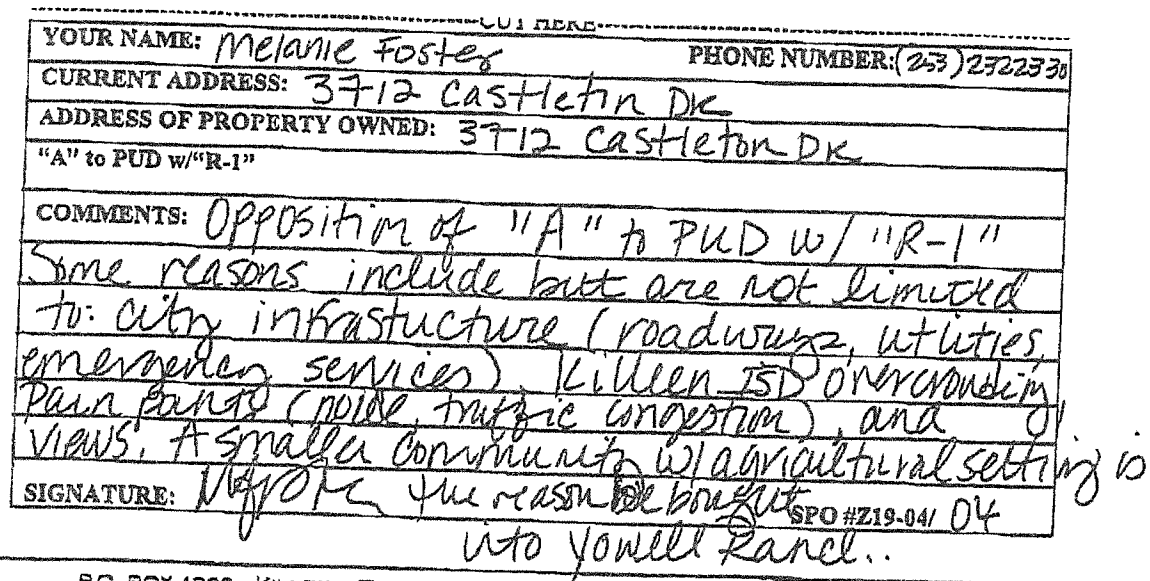 CUT HERE
YOUR NAME: Melanie Foster PHONE NUMBER:(253)2322330
CURRENT ADDRESS: 3712 Castletin DR
ADDRESS OF PROPERTY OWNED: 3712 Castleton DR
"A" to PUD w/"R-1"
COMMENTS: Opposition of "A" to PUD w/ "R-1"
Some reasons include but are not limited
to: city infrastucture (roadways, utlities,
emergency services), Killeen ISD overcrowding,
Pain points (noise, traffic congestion), and
views. A smaller community w/ agricultural setting is
SIGNATURE: the reason we bought SPO #Z19-04/ 04
into Yowell Ranch..